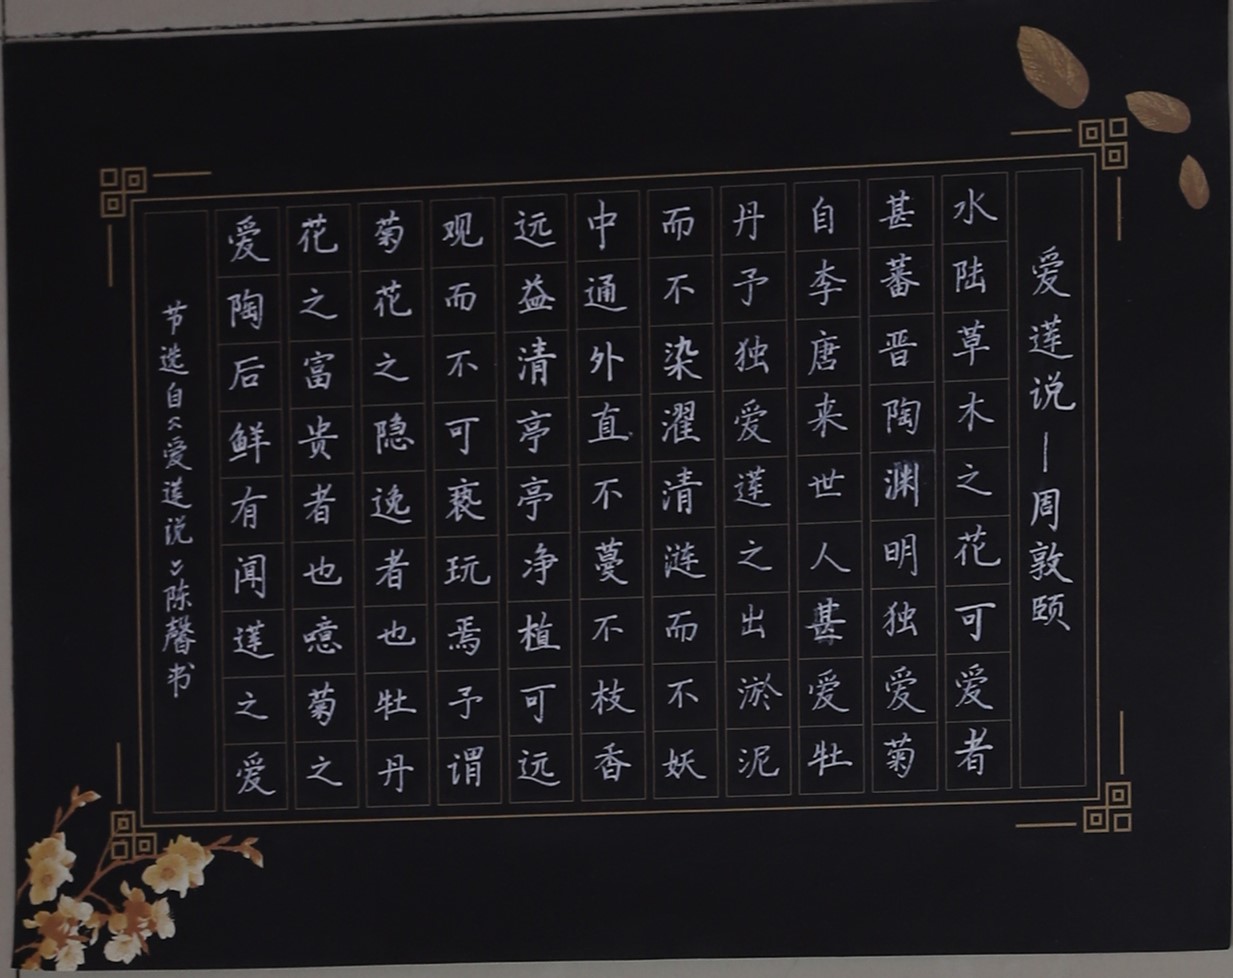 爱莲说—周敦颐
水陆草木之花可爱者
甚蕃晋陶渊明独爱菊
自李唐来世人甚爱牡
丹予独爱莲之出淤泥
而不染濯清涟而不妖
中通外直不蔓不枝香
远益清亭亭净植可远
观而不可亵玩焉予谓
菊花之隐逸者也牡丹
花之富贵者也噫菊之
爱陶后鲜有闻莲之爱
节选自《爱莲说》陈馨书